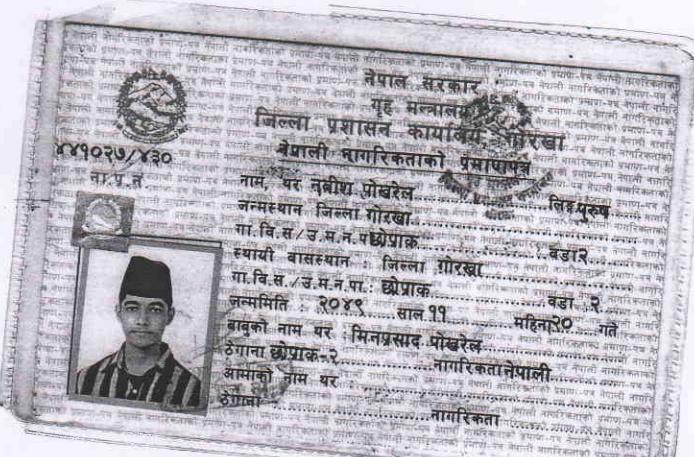 नेपाल सरकार
गृह मन्त्रालय
जिल्ला प्रशासन कार्यालय गोरखा
नेपाली नागरिकताको प्रमाणपत्र
४४१०२७/४३०
ना.प्र.नं.
नाम, थर नबीश पोखरेल लिङ्ग पुरुष
जन्मस्थान जिल्ला गोरखा
गा.वि.स/उ.म.न.पा छोप्राक वडा २
स्थायी बासस्थान : जिल्ला गोरखा
गा.वि.स./उ.म.न.पा.: छोप्राक वडा : २
जन्ममिति : २०४९ साल ११ महिना २० गते
बाबुको नाम थर मिनप्रसाद पोखरेल
ठेगाना छोप्राक-२ नागरिकता नेपाली
आमाको नाम थर
ठेगाना नागरिकता